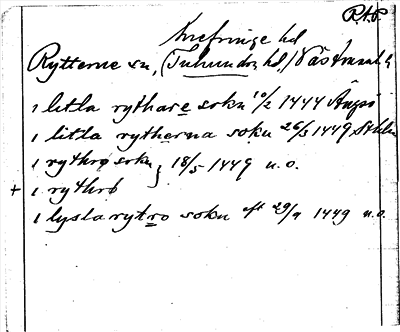 R1:5
Snefringe hd
Rytterne sn, (Tuhundra hd,) Västmanl.
i litla rythare soku 10/2 1444 Ängsö
i litla rytherna soku 26/3 1449 Sthlm
i rythro soku } 18/5 1449 u.o.
+ i rythro
i lysla rytro soku oft 29/9 1449 u.o.